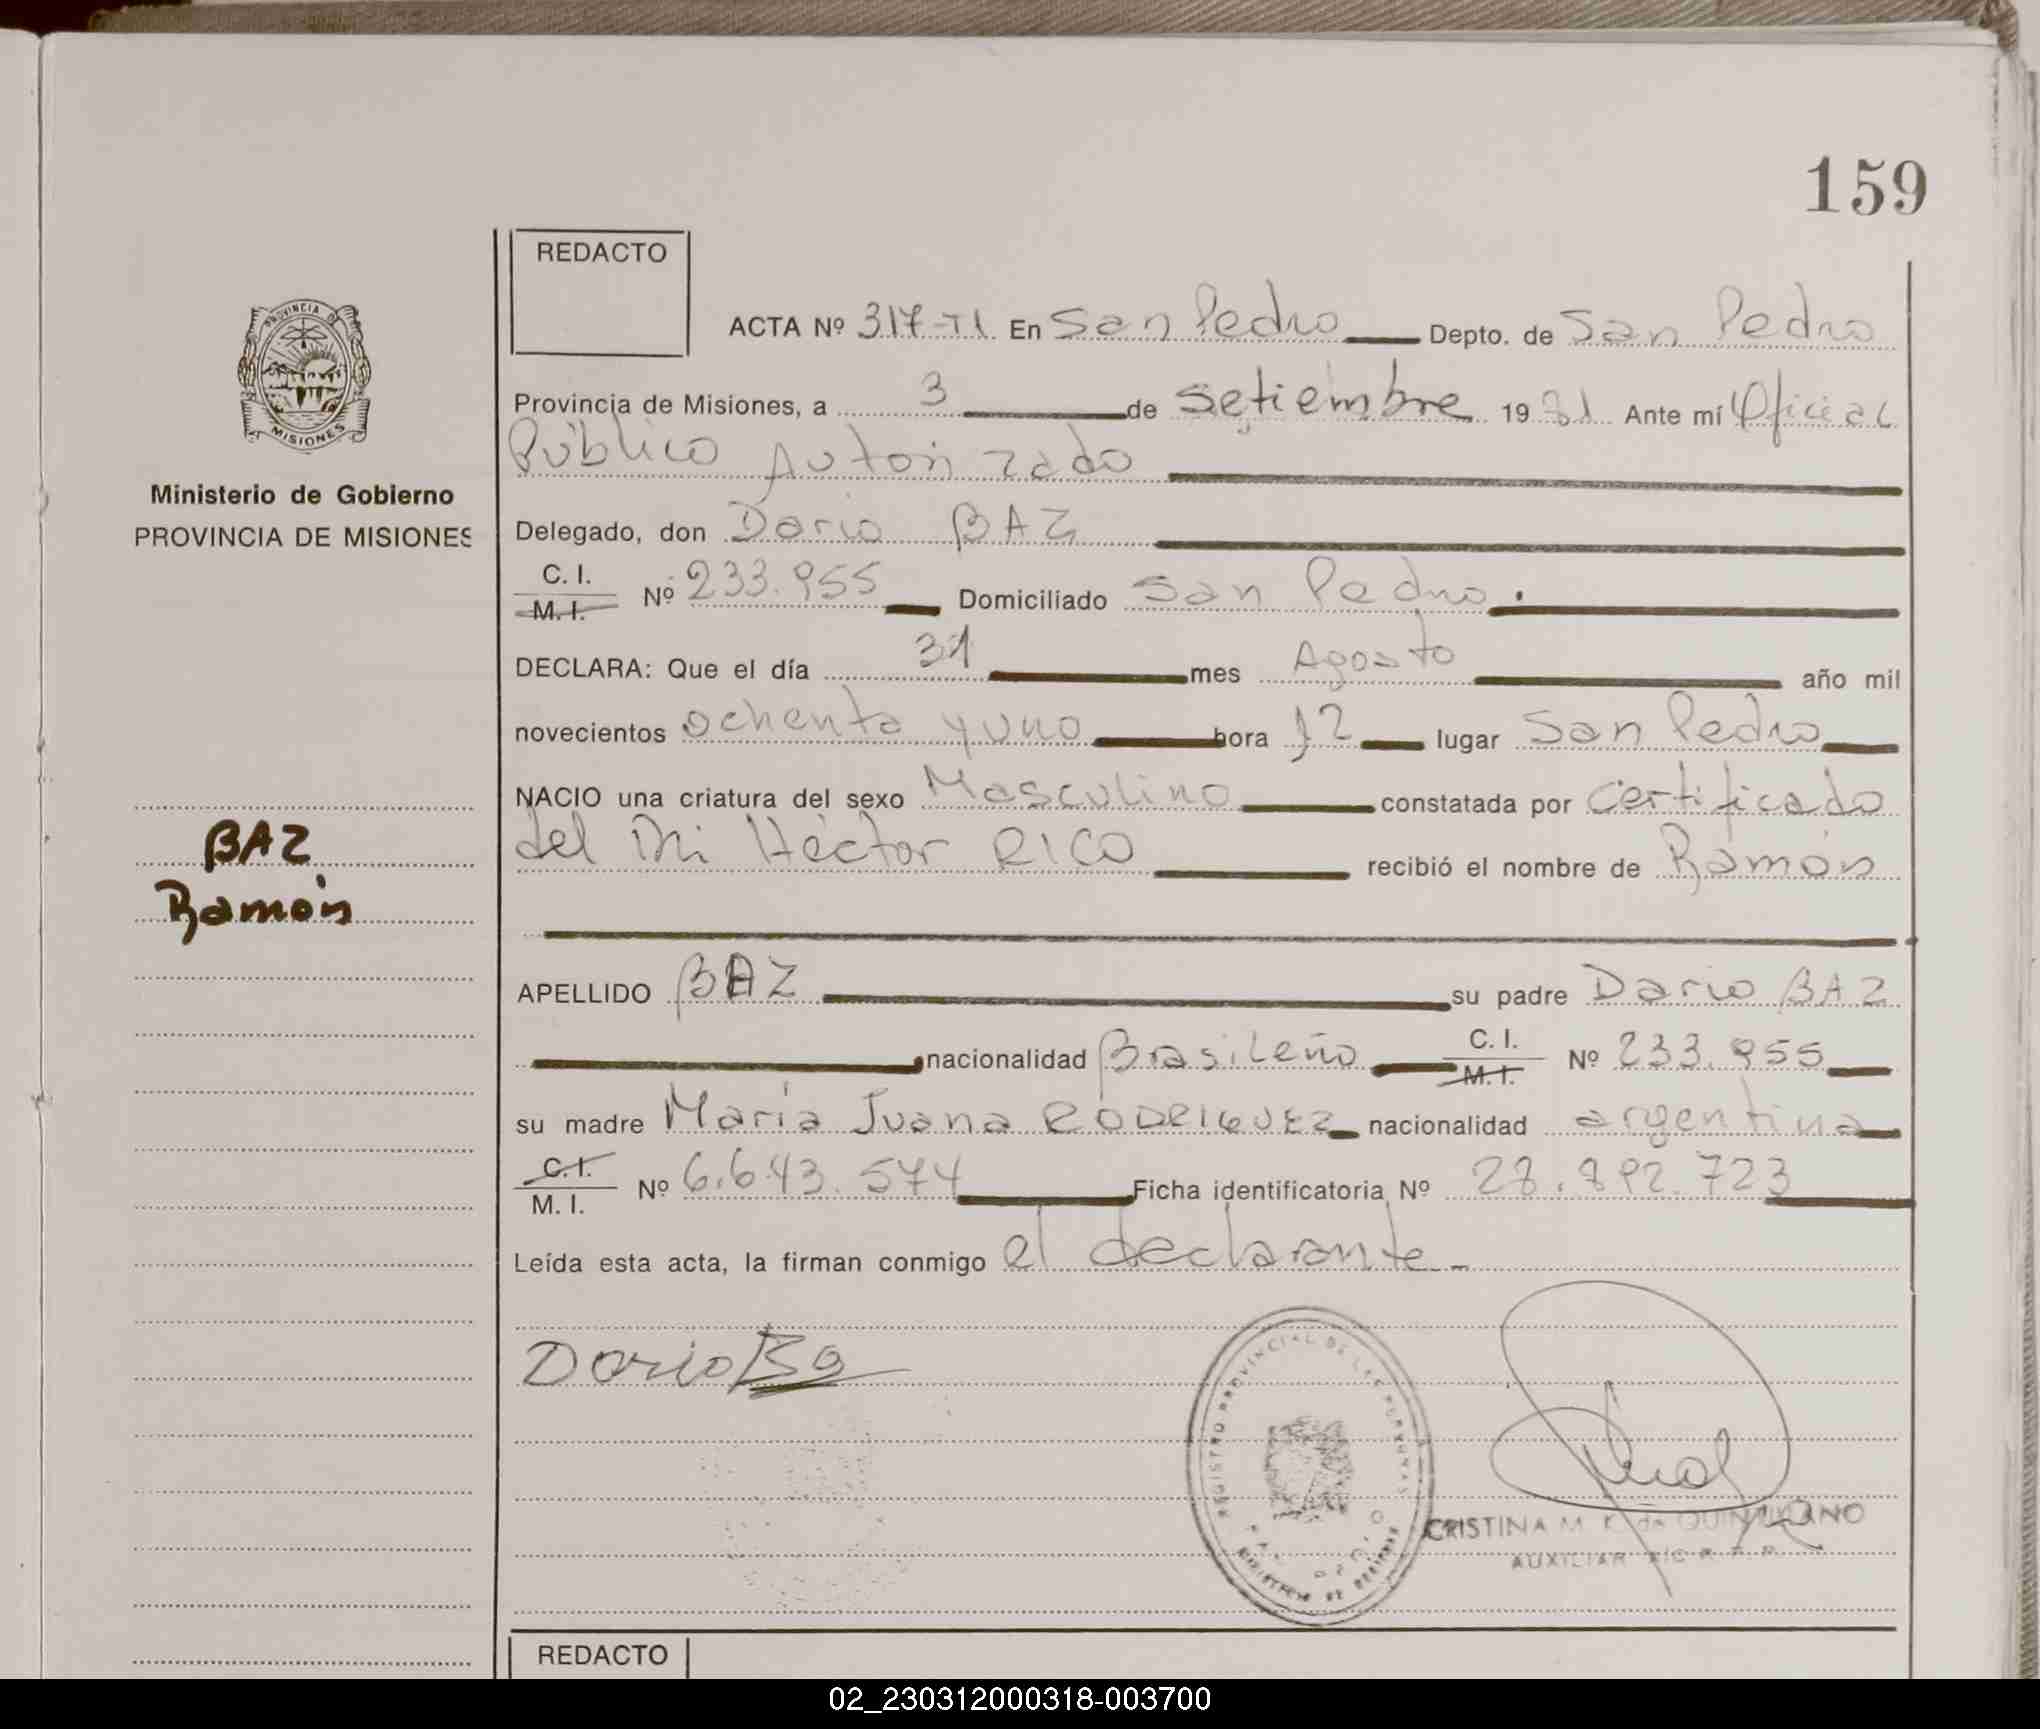 159
REDACTO
ACTA Nº 317-TI En San Pedro Depto. de San Pedro
Provincia de Misiones, a 3 de Setiembre 1981 Ante mí Oficial
Público Autorizado
Ministerio de Gobierno
PROVINCIA DE MISIONES
PROVINCIA DE
MISIONES
Delegado, don Dario BAZ
C. I.
M. I. Nº 233.955 Domiciliado San Pedro.
DECLARA: Que el día 31 mes Agosto año mil
novecientos ochenta y uno hora 12 lugar San Pedro
NACIO una criatura del sexo Masculino constatada por Certificado
del Héctor RICO recibió el nombre de Ramón
BAZ
Ramón
APELLIDO BAZ su padre Dario BAZ
nacionalidad Brasileño C. I. M. I. Nº 233.955
su madre María Juana RODRIGUEZ nacionalidad argentina
C. I.
M. I. Nº 6.643.574 Ficha identificatoria Nº 28.892.723
Leída esta acta, la firman conmigo el declarante.-
Dario Ba
REGISTRO PROVINCIAL DE LAS PERSONAS
CRISTINA M. K. de
AUXILIAR
REDACTO
02_230312000318-003700